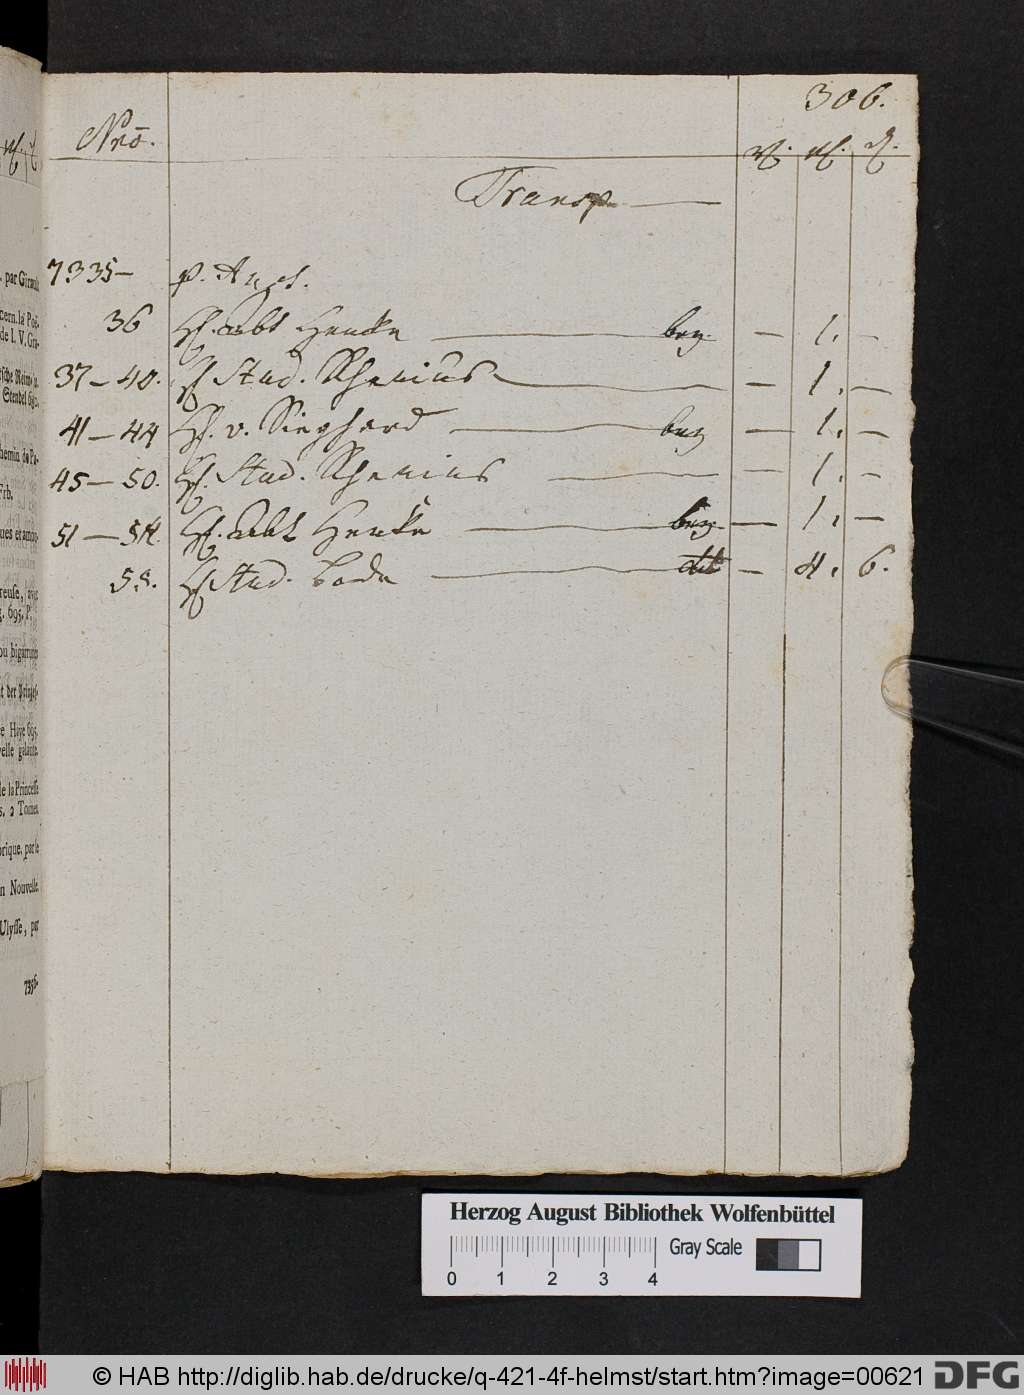 306.
Nro.
Transp
7335 – p. Auct.
36 H. Abt Hencke bez – 1. –
37 – 40. H Stud. Rhenius – 1. –
41 – 44 H. v. Sieghard bez – 1. –
45 – 50. H. Stud. Rhenius – 1. –
51 – 54. H. Abt Hencke bez – 1. –
55. H Stud. Bode dit – 4. 6.
. par Girault
cern. la Poë.
de l. V. Gra-
Stendel 692.
hemin de Pa-
Frb.
ques et amou-
reuse,
g. 695. P.
ou bigarrures
t der Prinzes-
e Haye 695.
velle galante.
de la Princesse
s. 2 Tomes.
orique. par le
n Nouvelle.
Ulysse, par
7356.
Herzog August Bibliothek Wolfenbüttel
Gray Scale
0 1 2 3 4
© HAB http://diglib.hab.de/drucke/q-421-4f-helmst/start.htm?image=00621
DFG